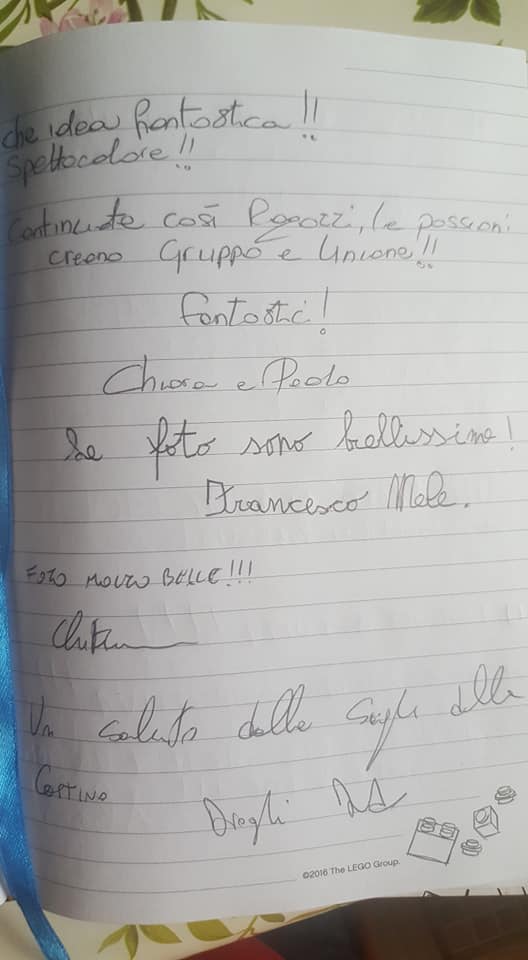 che idea fantastica!!
Spettacolare!!
Continuate così Ragazzi, le passioni
creano Gruppo e Unione!!
Fantastici!
Chiara e Paolo
Le foto sono bellissime!
Francesco Mele.
FOTO MOLTO BELLE!!!
Un saluto dalle
©2016 The LEGO Group.